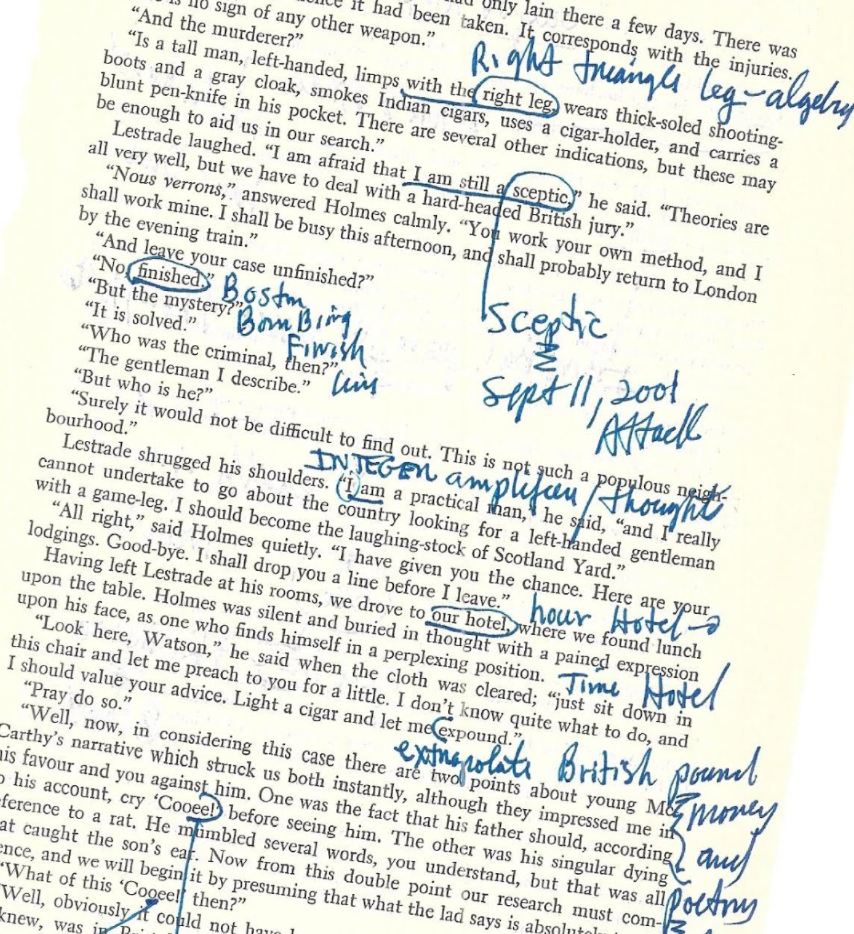 only lain there a few days. There was
is no sign of any other weapon." it had been taken. It corresponds with the injuries.
"And the murderer?"
Right triangle leg-algebra
"Is a tall man, left-handed, limps with the right leg, wears thick-soled shooting-
boots and a gray cloak, smokes Indian cigars, uses a cigar-holder, and carries a
blunt pen-knife in his pocket. There are several other indications, but these may
be enough to aid us in our search."
Lestrade laughed. "I am afraid that I am still a sceptic," he said. "Theories are
all very well, but we have to deal with a hard-headed British jury."
"Nous verrons," answered Holmes calmly. "You work your own method, and I
shall work mine. I shall be busy this afternoon, and shall probably return to London
by the evening train."
"And leave your case unfinished?"
"No, finished." Boston
"But the mystery?" Bombing
"It is solved." Finish
"Who was the criminal, then?" line
"The gentleman I describe."
Sceptic
Sept 11, 2001
Attack
"But who is he?"
"Surely it would not be difficult to find out. This is not such a populous neigh-
bourhood."
INTEGER amplifier/thought
Lestrade shrugged his shoulders. "I am a practical man," he said, "and I really
cannot undertake to go about the country looking for a left-handed gentleman
with a game-leg. I should become the laughing-stock of Scotland Yard."
"All right," said Holmes quietly. "I have given you the chance. Here are your
lodgings. Good-bye. I shall drop you a line before I leave."
Having left Lestrade at his rooms, we drove to our hotel, where we found lunch
hour Hotel→
upon the table. Holmes was silent and buried in thought with a pained expression
upon his face, as one who finds himself in a perplexing position.
Time Hotel
"Look here, Watson," he said when the cloth was cleared; "just sit down in
this chair and let me preach to you for a little. I don't know quite what to do, and
I should value your advice. Light a cigar and let me expound."
extrapolate British pound
money
and
poetry
"Pray do so."
"Well, now, in considering this case there are two points about young Mc-
Carthy's narrative which struck us both instantly, although they impressed me in
his favour and you against him. One was the fact that his father should, according
to his account, cry 'Cooee!' before seeing him. The other was his singular dying
reference to a rat. He mumbled several words, you understand, but that was all
that caught the son's ear. Now from this double point our research must com-
ence, and we will begin it by presuming that what the lad says is absolutely
"What of this 'Cooee!' then?"
"Well, obviously it could not have
knew, was in